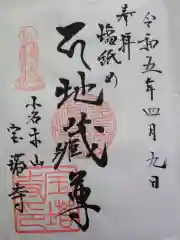 令和五年四月九日
奉拝
塩舐め
地藏尊
小名木山
宝塔寺